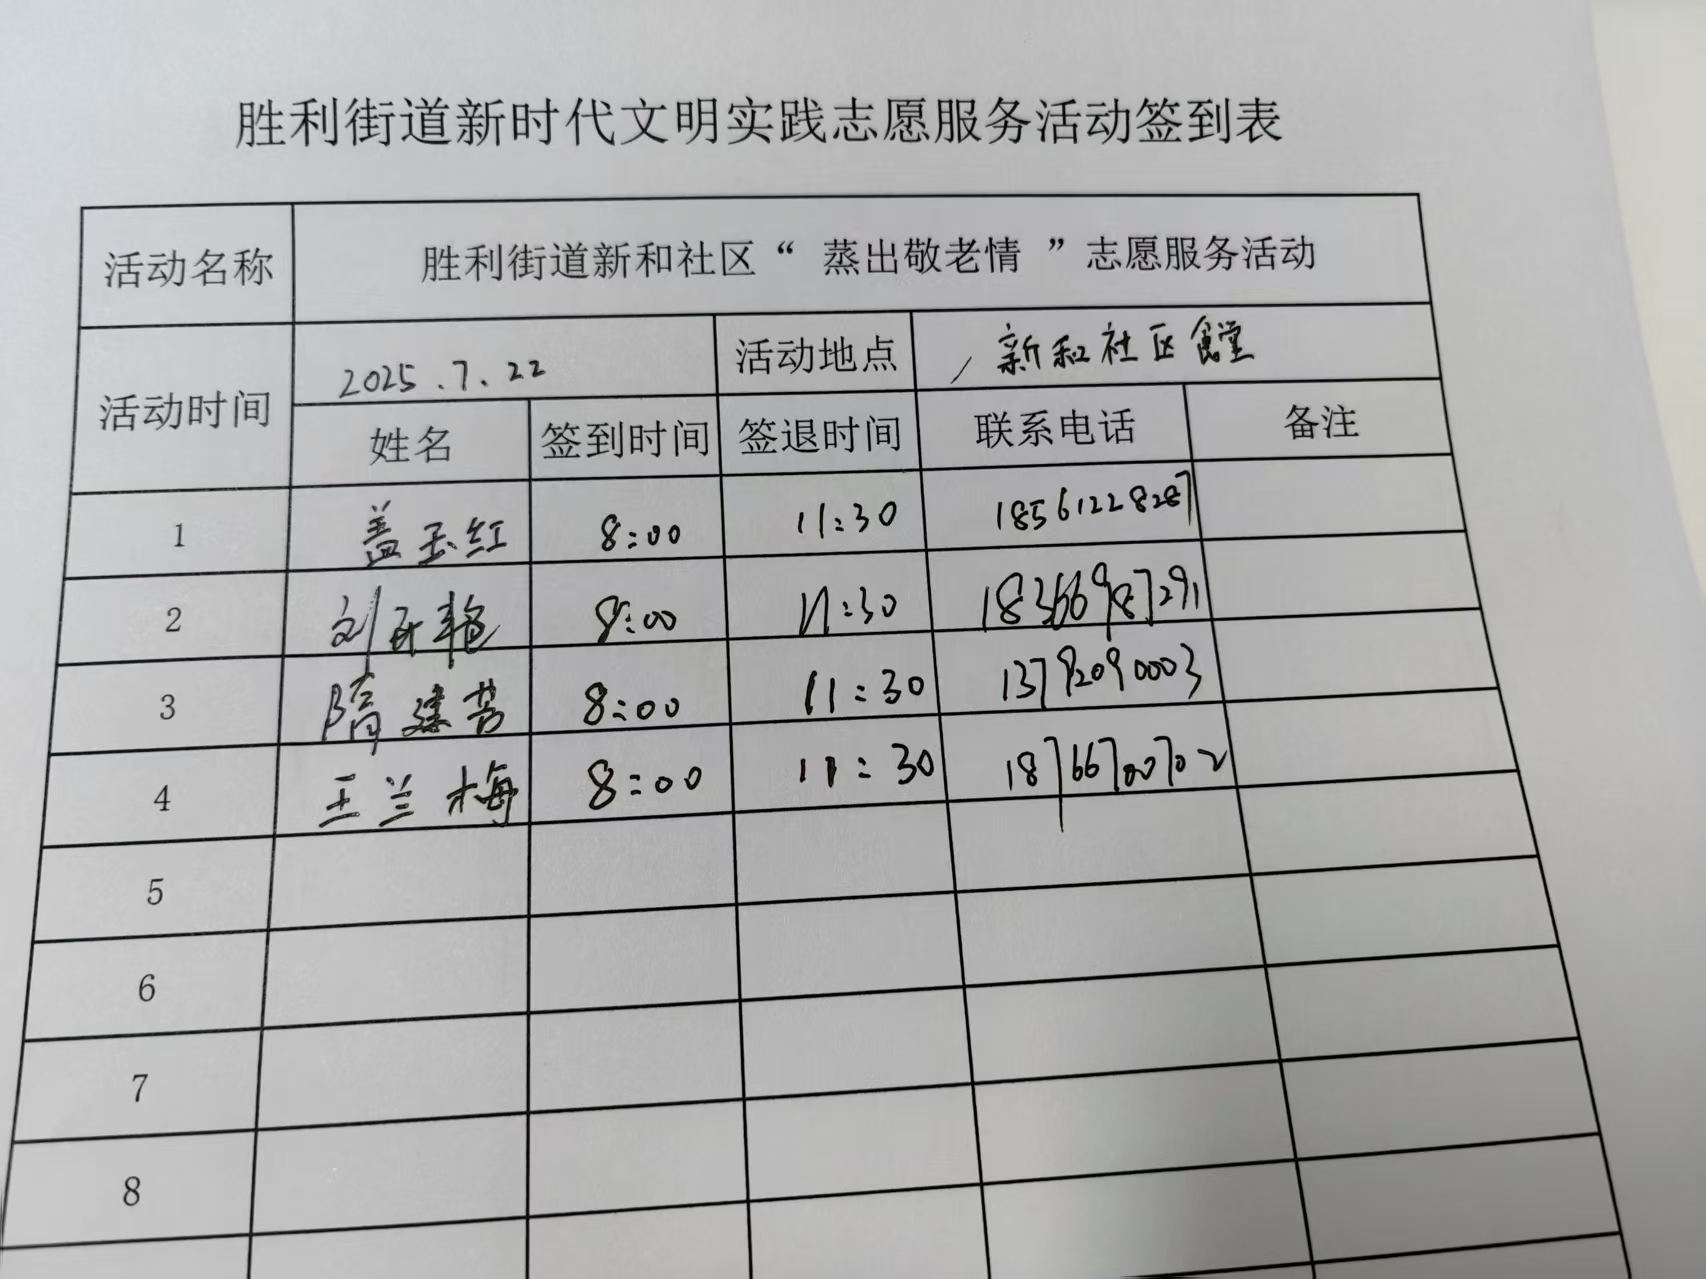 胜利街道新时代文明实践志愿服务活动签到表
活动名称 胜利街道新和社区“ 蒸出敬老情 ”志愿服务活动
活动时间 2025.7.22 活动地点 新和社区食堂
姓名 签到时间 签退时间 联系电话 备注
1 盖玉红 8:00 11:30 18561228287
2 刘 艳 8:00 11:30 18366987291
3 隋建芳 8:00 11:30 13792090003
4 王兰梅 8:00 11:30 18766700702
5
6
7
8